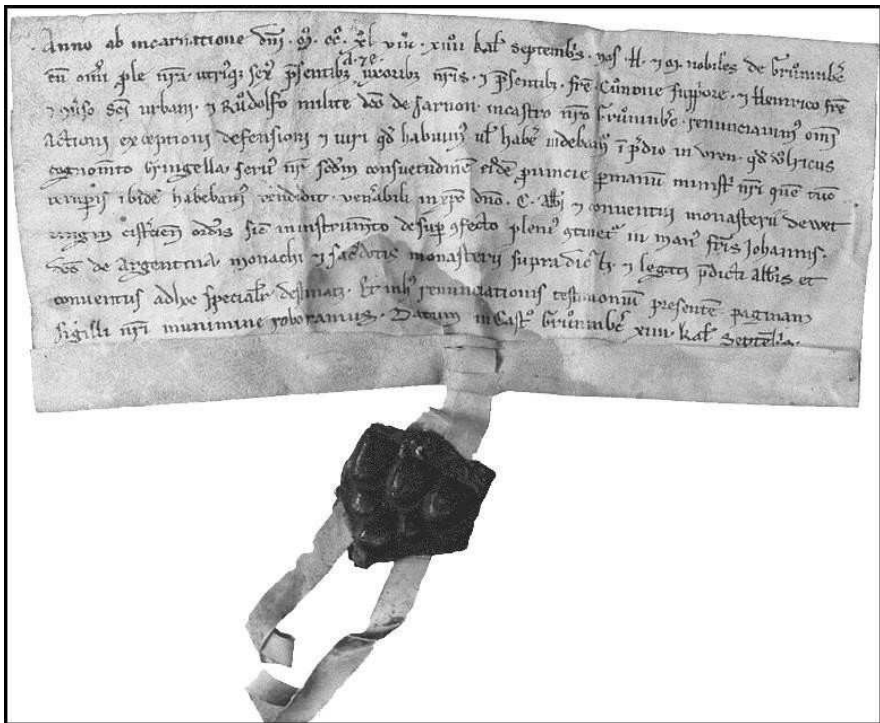 Anno ab incarnatione dni · M · cc · xl viiii · xiiii kal septembs · nos · H · et M nobiles de Grůnnbc
cū omi ple nra utriq; sex psentib; uxorib; nris · et psentib; · fre Cůnone suppore · et Heinrico fre
sci urbani · et Růdolfo milite dco de Sarnon · in castro nro Grůnnbc · renunciavim omi
actioni exceptioni defensioni et iuri qd habuim ul habe videbam ī pdio in vren · qd vlricus
cognomto seru nr scdm consuetudinē eide puincie p manu minist nri quē tūc
tempis ibidē habebam vendidit · venabili in xpo dno · C · Abbi et conventui monasterii de wet
tingin cistcien ordis sic in instrumto desup cfecto pleni ctinet in man fris Johannis ·
dco de Argentina monachi et sacdotis monasterii supradic et legati pdicti abbis et
conventus adhoc specialr destinati · Et in h renunciationis testimoniū presentē paginam
Sigilli nri munimine roboramus · Datum in Cast Grůnnbc xiiii · kal septēb